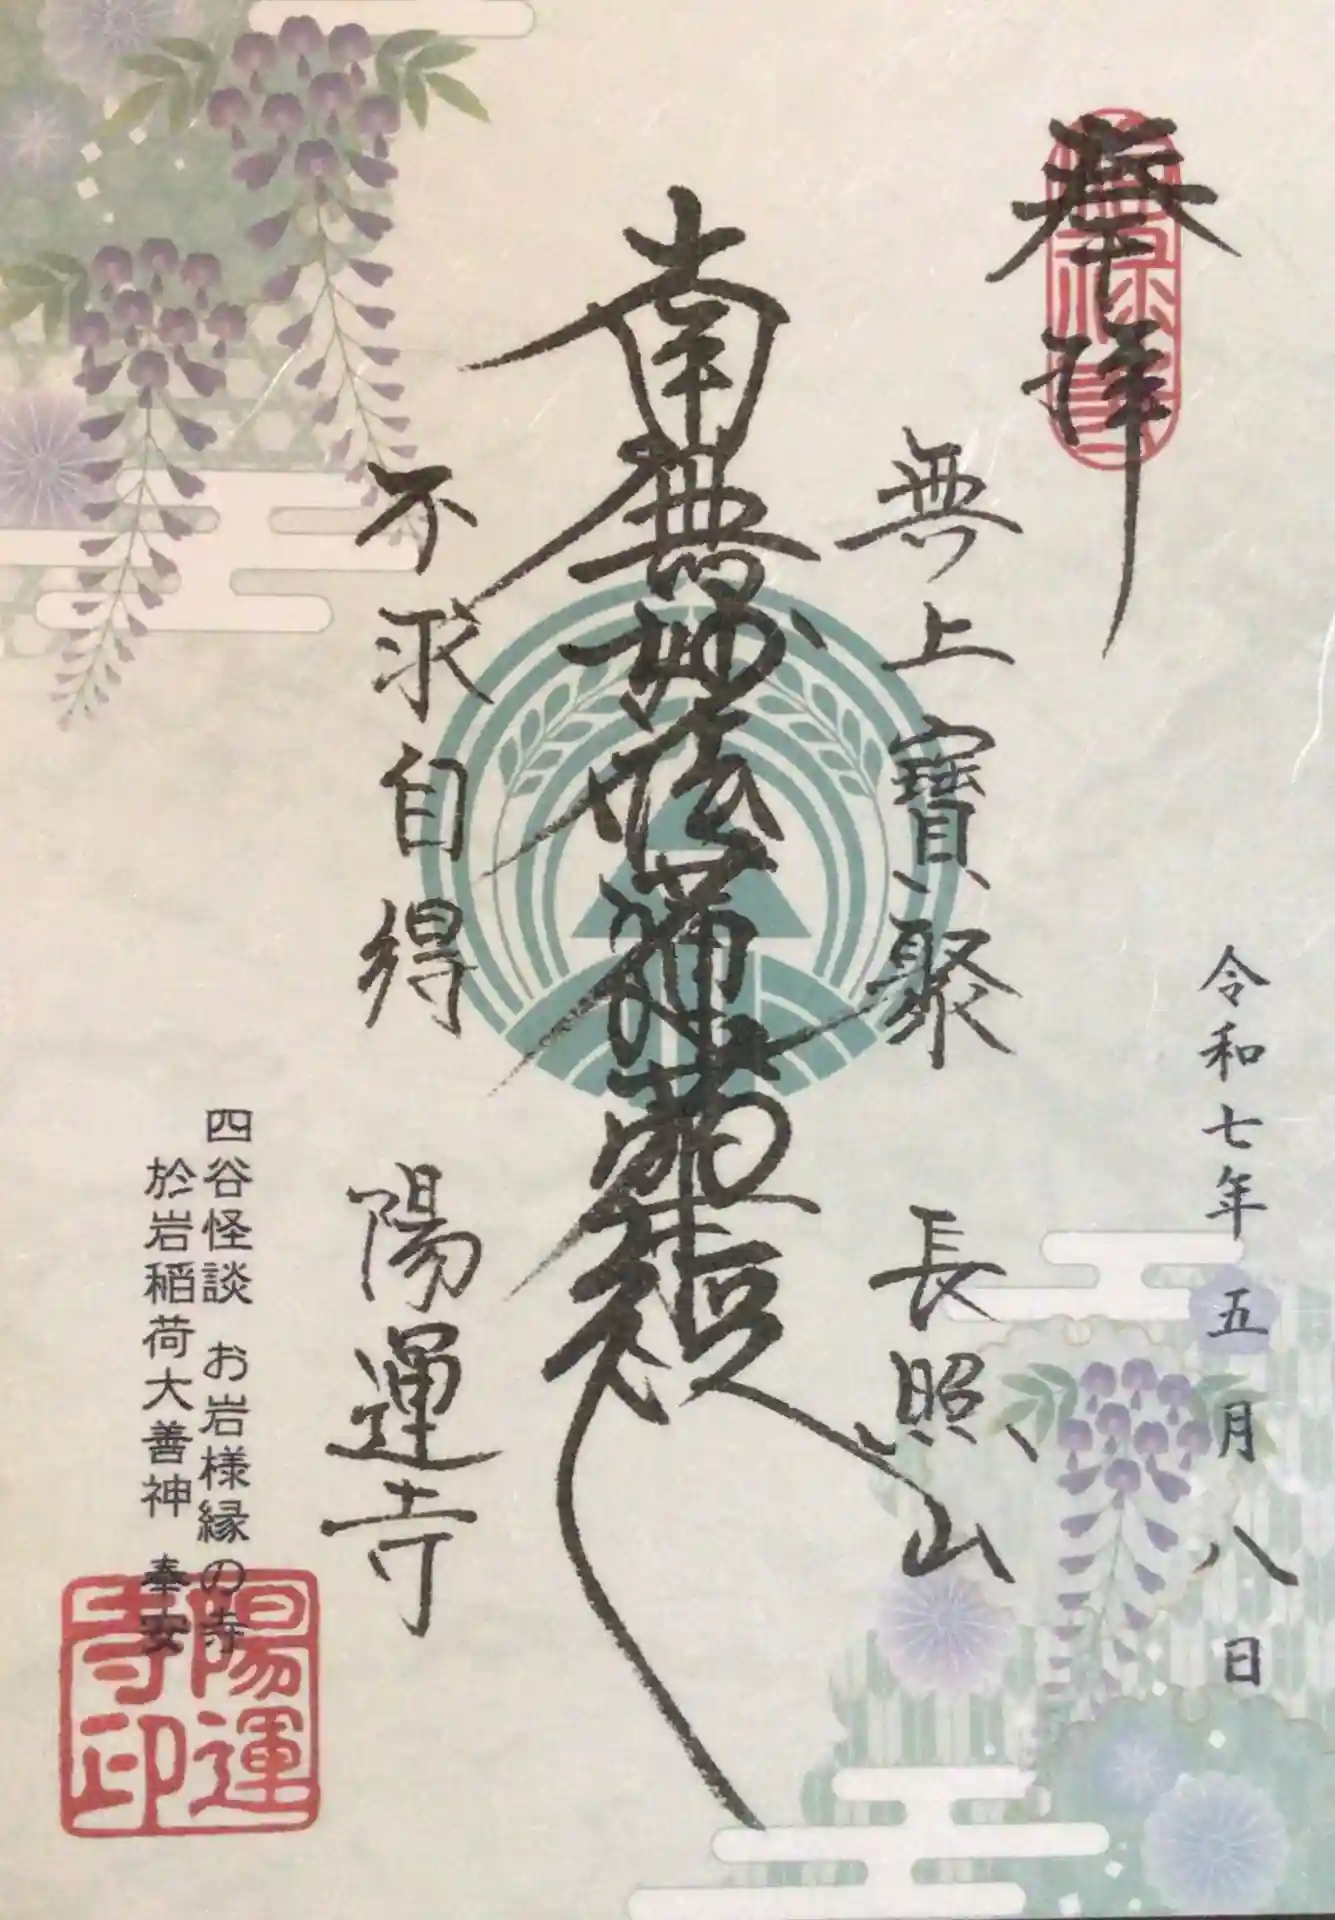 奉拝
令和七年 五月八日
無上寶聚 長照山
南無妙法蓮華経
不求自得 陽運寺
四谷怪談 お岩様縁の寺
於岩稲荷大善神 奉安
陽運
寺印